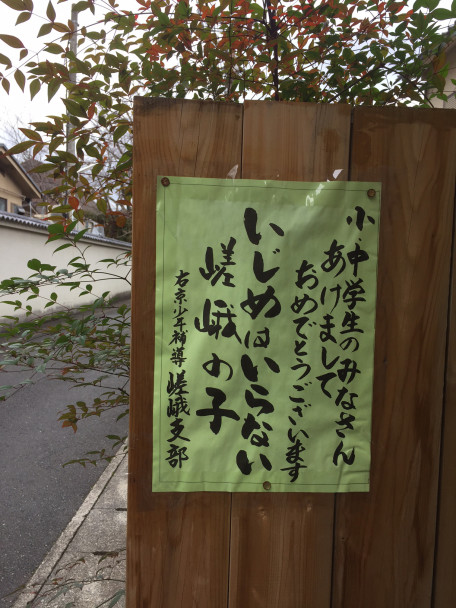 小・中学生のみなさん
あけまして
おめでとうございます
いじめはいらない
嵯峨の子
右京少年補導 嵯峨支部